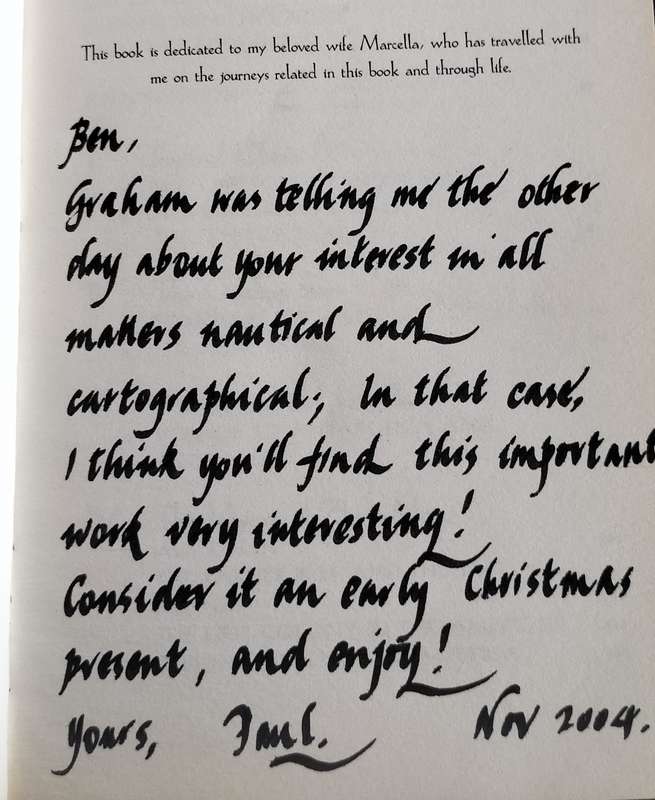 This book is dedicated to my beloved wife Marcella, who has travelled with
me on the journeys related in this book and through life.
Ben,
Graham was telling me the other
day about your interest in all
matters nautical and
cartographical; In that case,
I think you'll find this important
work very interesting!
Consider it an early Christmas
present, and enjoy!
Yours, Paul. Nov 2004.